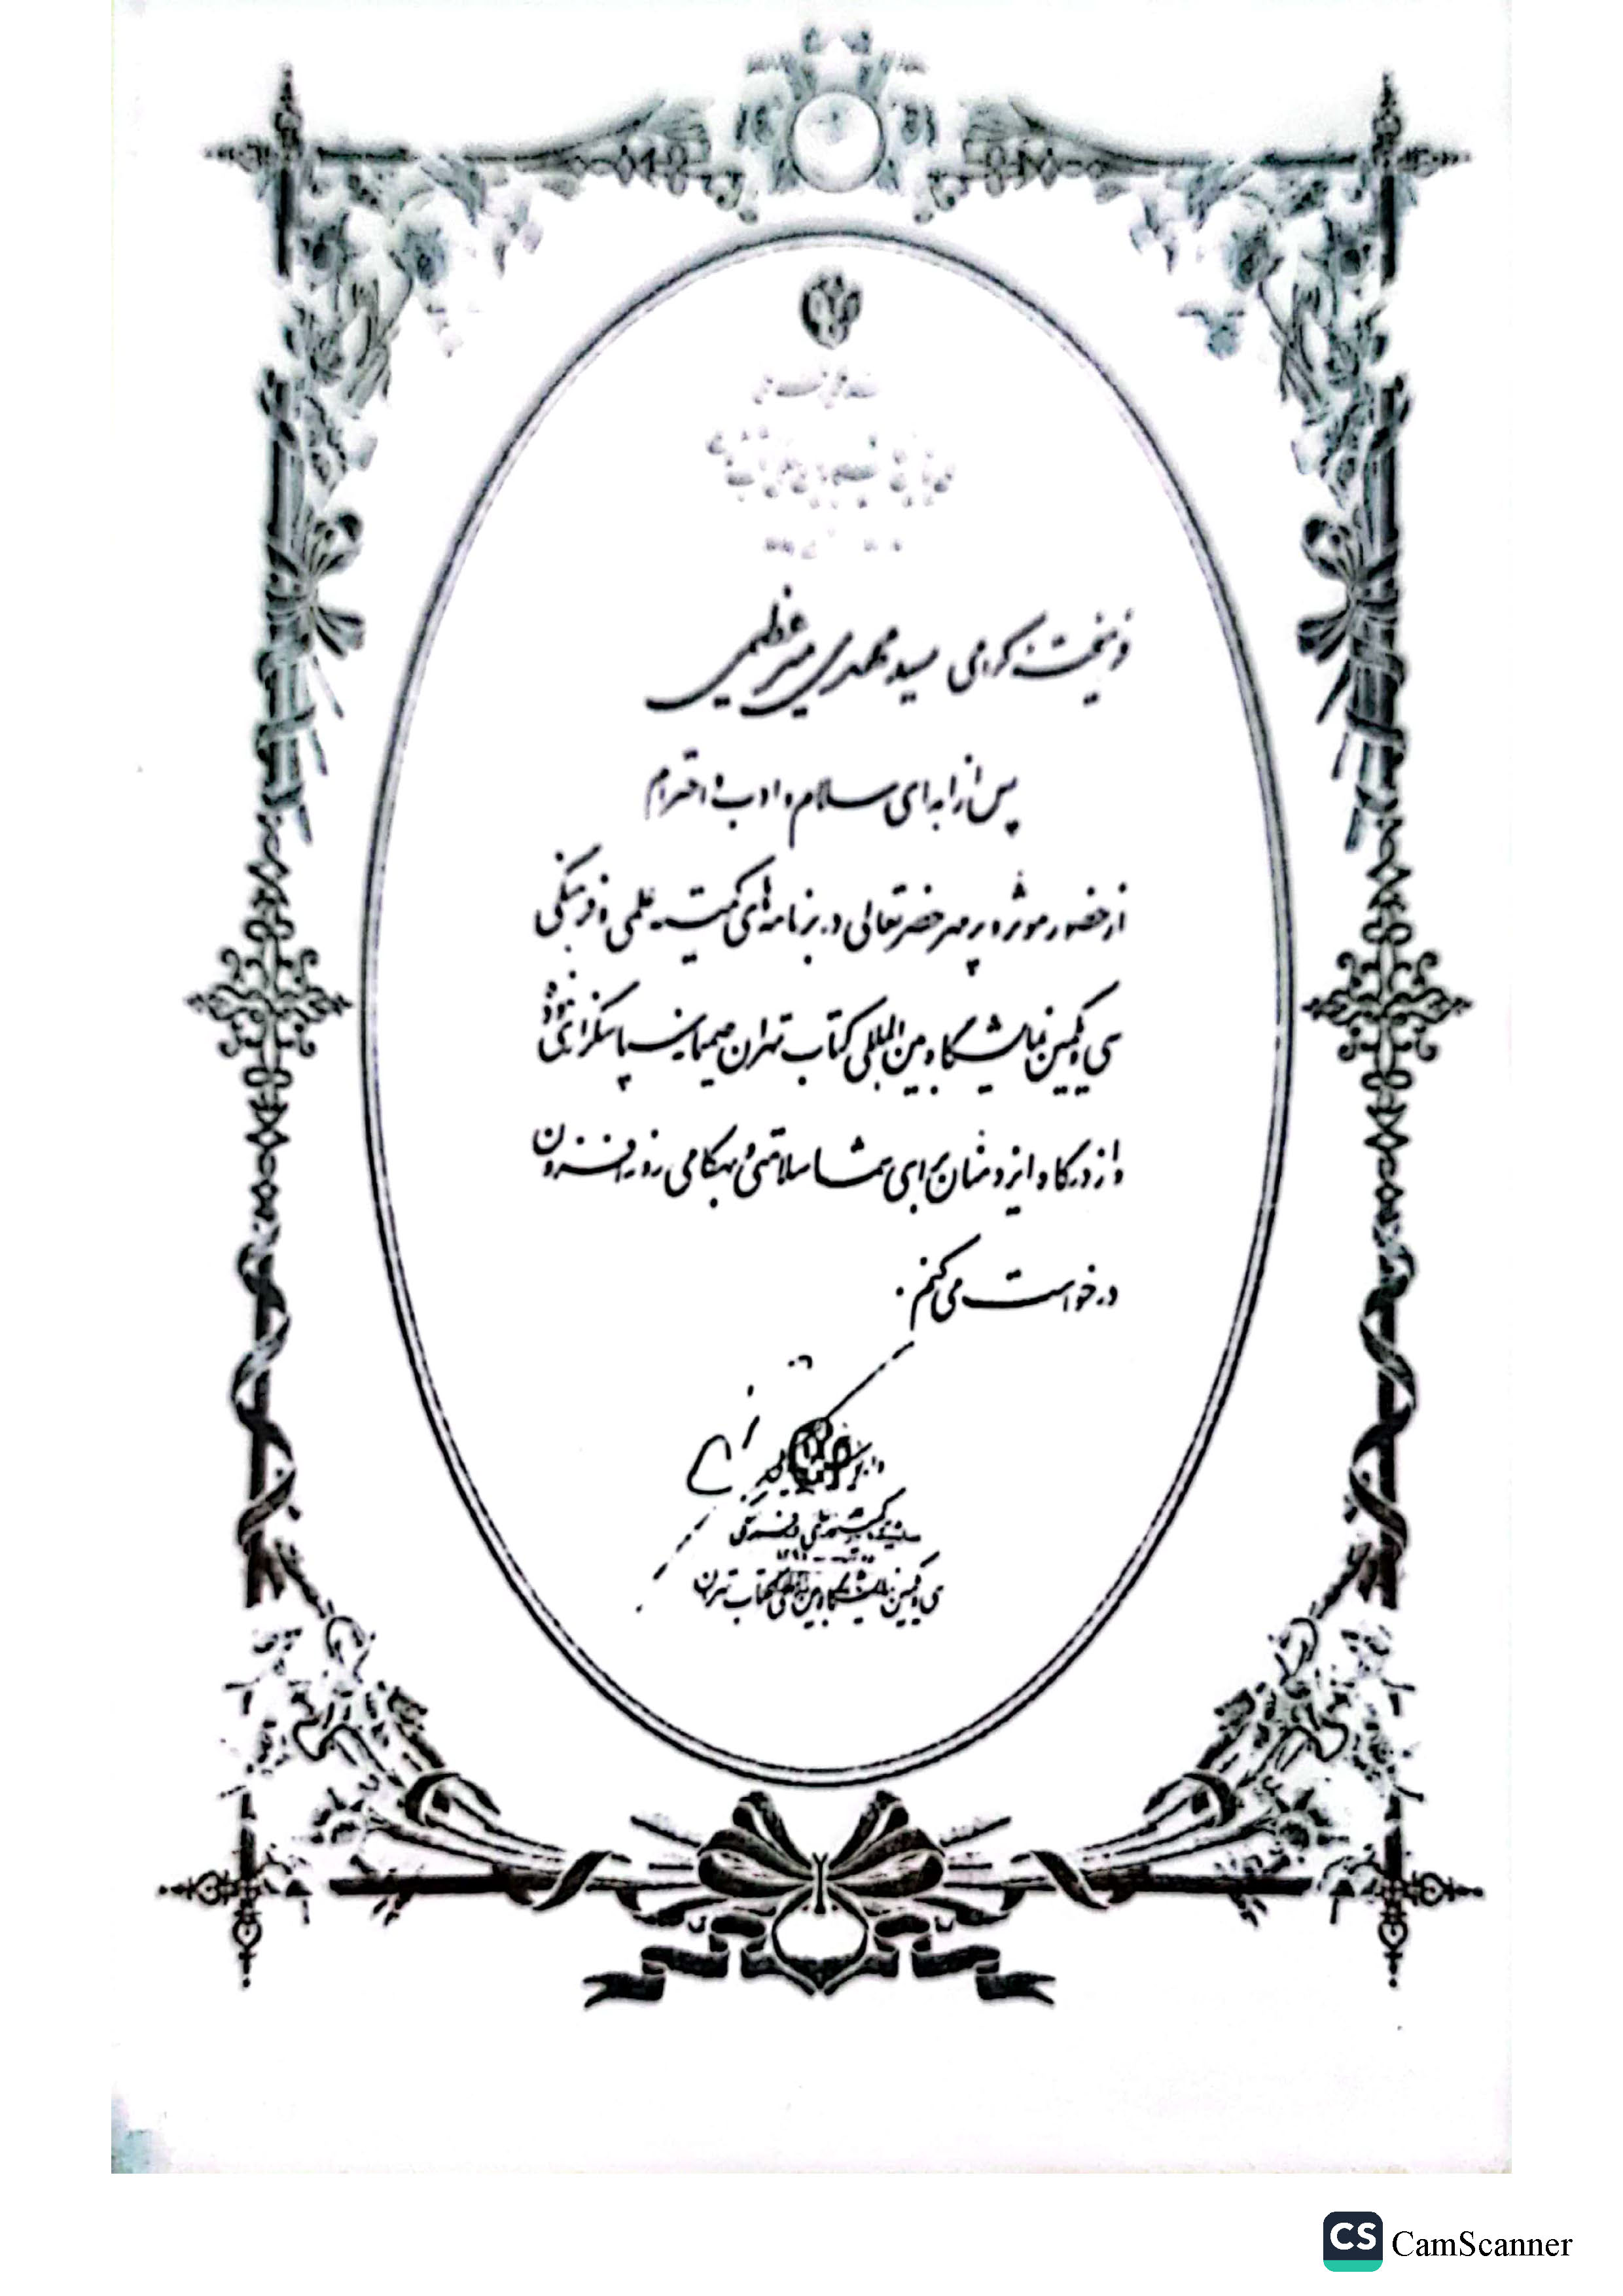 فرهیخته گرامی سید مهدی میرعظیمی
پس از اهدای سلام و ادب و احترام
از حضور موثر و پرمهر حضرتعالی در برنامه‌های کمیته علمی و فرهنگی
سی و یکمین نمایشگاه بین المللی کتاب تهران صمیمانه سپاسگزاری نموده
و از درگاه ایزد منان برای شما سلامتی و بهکامی روزافزون
درخواست می‌کنم .
کمیته علمی و فرهنگی
سی و یکمین نمایشگاه بین المللی کتاب تهران
CS CamScanner